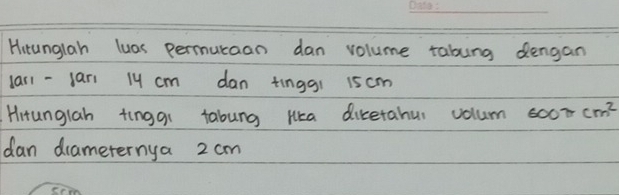 Date:
Hitunglah luas permukaan dan volume tabung dengan
jari - jari 14 cm dan tinggi 15 cm
Hitunglah tinggi tabung jika diketahui volum 600π cm²
dan diameternya 2 cm
5cm